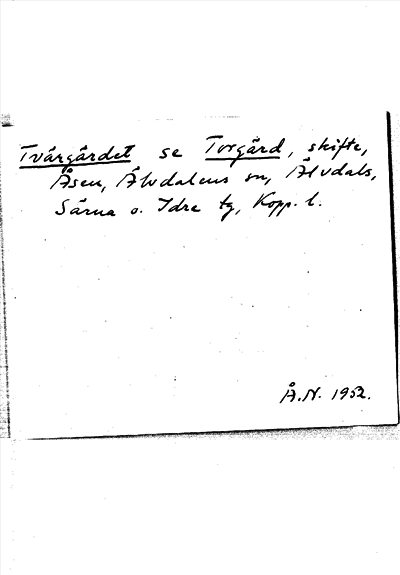 Tvärgärdet se Torgård, skifte,
Åsen, Älvdalens sn, Älvdals,
Särna o. Idre tg, Kopp. l.
Å.N. 1952.